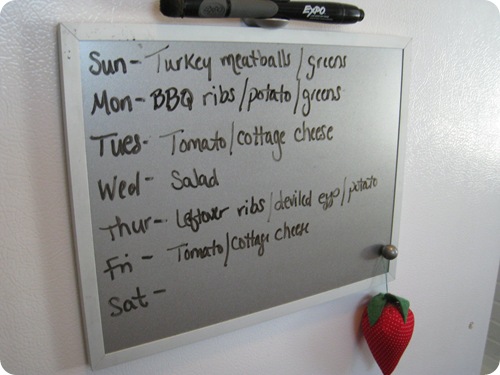 EXPO
Sun- Turkey meatballs/greens
Mon- BBQ ribs/potato/greens
Tues- Tomato/cottage cheese
Wed- Salad
Thur- Leftover ribs/deviled egg/potato
Fri - Tomato/cottage cheese
Sat -